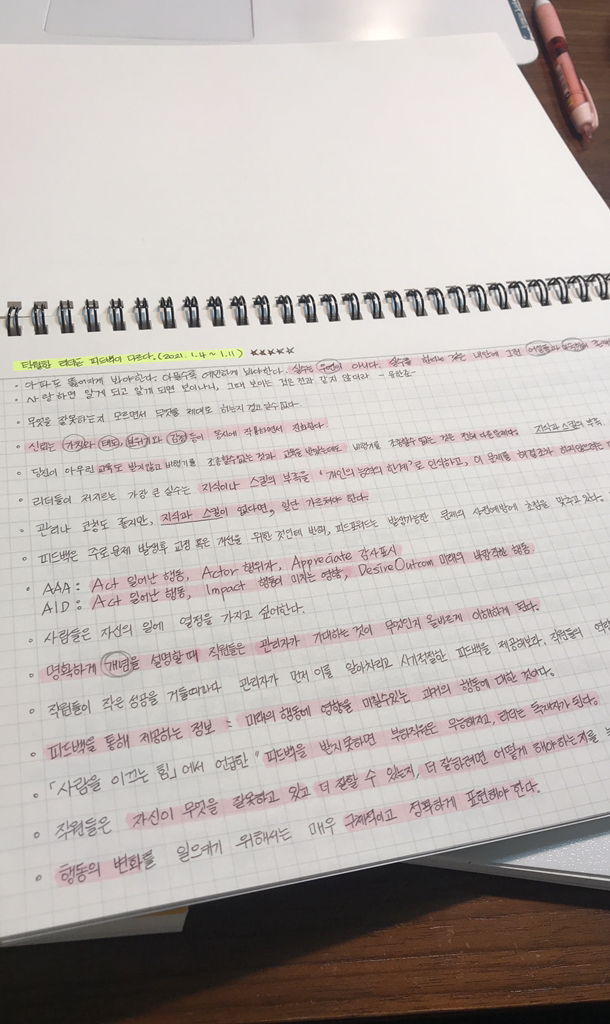 탁월한 리더는 피드백이 다르다. (2021. 1.4 ~ 1.11) ★★★★★
• 아파도 뚫어지게 봐야한다. 아플수록 예민하게 봐야한다. 실수는 우연이 아니다. 실수를 한다는 것은 내안에 그런
• 사랑하면 알게 되고 알게 되면 보이나니, 그때 보이는 것은 전과 같지 않더라 - 유한준-
• 무엇을 잘못하는지 모르면서 무엇을 제대로 하는지 결코 알수없다.
• 신뢰는 가치와 태도, 분위기와 감정 등이 동시에 작용하면서 진화한다.
• 당신이 아무런 교육도 받지않고 비행기를 조종할수없는 것과 교육을 받았는데도 비행기를 조종할수 없는 것은 전혀 다른문제다. 지식과 스킬의 부족
• 리더들이 저지르는 가장 큰 실수는 지식이나 스킬의 부족을 '개인의 능력의 한계'로 인식하고, 이 문제를 해결조차 하지않으려는
• 관리나 코칭도 좋지만, 지식과 스킬이 없다면, 일단 가르쳐야 한다.
• 피드백은 주로 문제 발생후 교정 혹은 개선을 위한 것인데 반해, 피드포워드는 발생가능한 문제의 사전예방에 초점을 맞추고 있다.
• AAA : Act 일어난 행동, Actor 행위자, Appreciate 감사표시
AID : Act 일어난 행동, Impact 행동이 미치는 영향, Desire Outcom 미래의 바람직한 행동
• 사람들은 자신의 일에 열정을 가지고 싶어한다.
• 명확하게 개념을 설명할 때 직원들은 관리자가 기대하는 것이 무엇인지 올바르게 이해하게 된다.
• 직원들이 작은 성공을 거둘때마다 관리자가 먼저 이를 알아차리고 시기적절한 피드백을 제공해보라. 직원들의
• 피드백을 통해 제공하는 정보 : 미래의 행동에 영향을 미칠수있는 과거의 행동에 대한 것이다.
• 「사람을 이끄는 힘」에서 언급한 "피드백을 받지못하면 부하직원은 무능해지고, 리더는 독재자가 된다.
• 직원들은 자신이 무엇을 잘못하고 있고 더 잘할 수 있는지, 더 잘하려면 어떻게 해야하는지를
• 행동의 변화를 일으키기 위해서는 매우 구체적이고 정확하게 표현해야 한다.